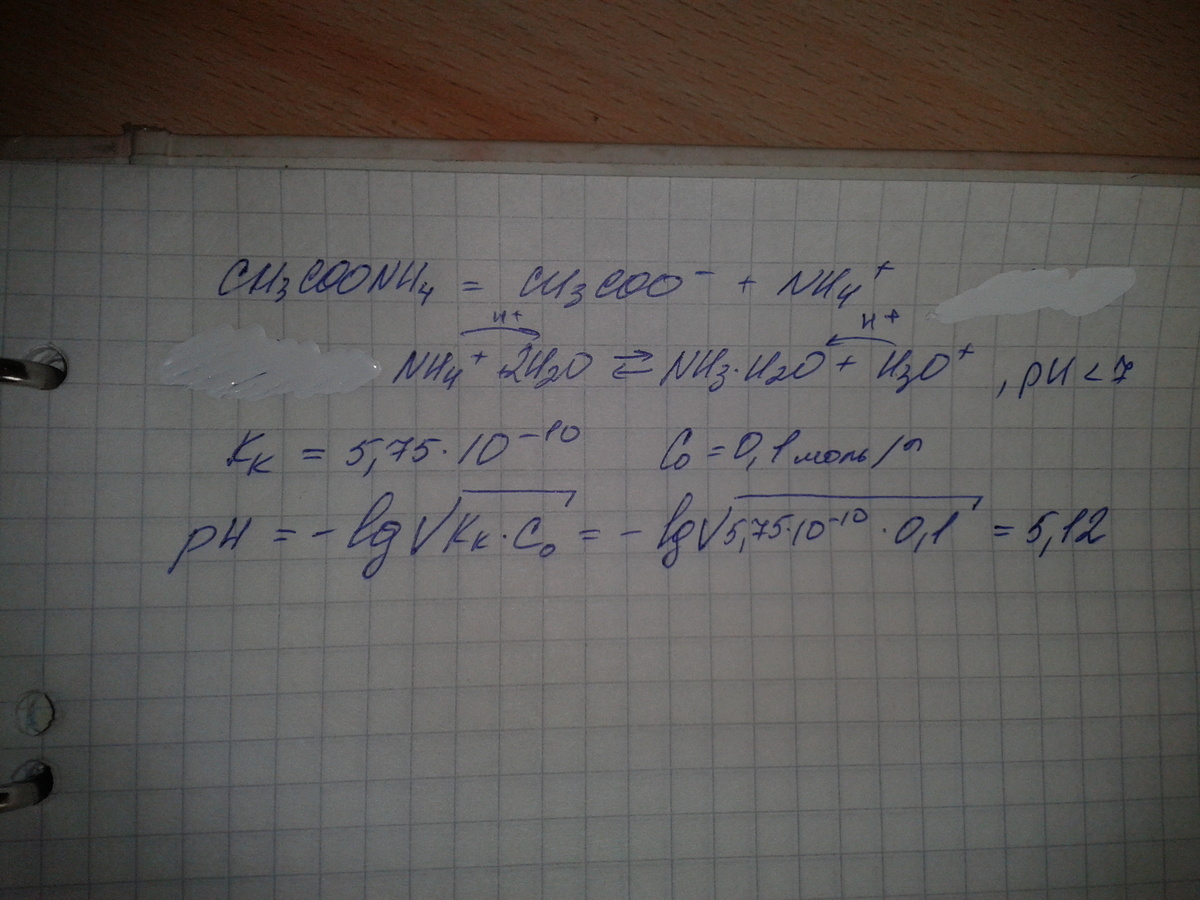 CH₃COONH₄ = CH₃COO⁻ + NH₄⁺
H⁺ H⁺
NH₄⁺ + 2H₂O ⇄ NH₃·H₂O + H₃O⁺ , pH < 7
Kк = 5,75·10⁻¹⁰ C₀ = 0,1 моль/л
pH = -lg√Kк·C₀ = -lg√5,75·10⁻¹⁰·0,1 = 5,12